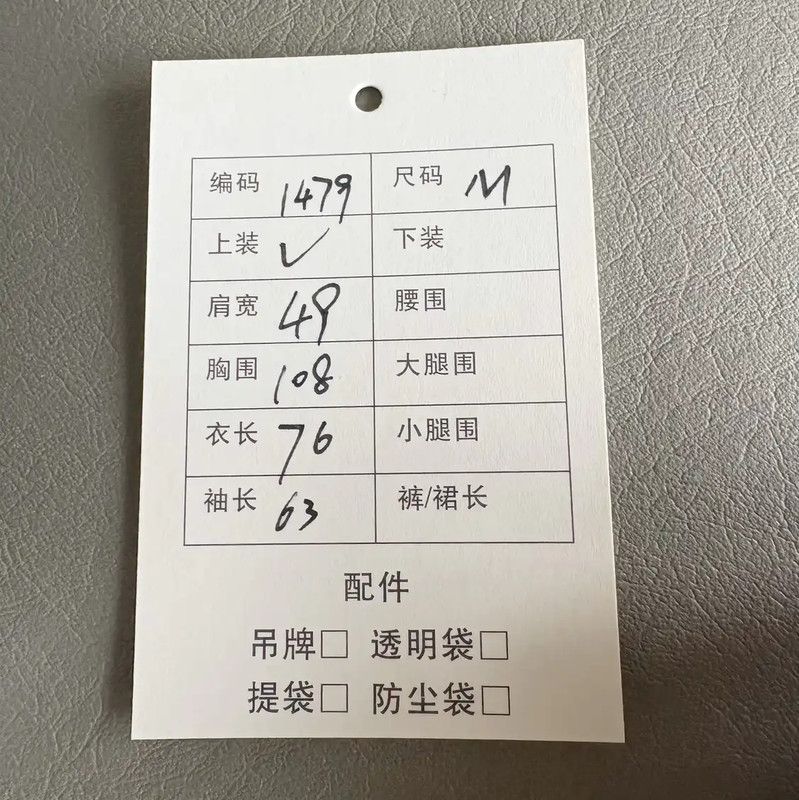 编码 1479 尺码 M
上装 ✓ 下装
肩宽 49 腰围
胸围 108 大腿围
衣长 76 小腿围
袖长 63 裤/裙长
配件
吊牌□ 透明袋□
提袋□ 防尘袋□